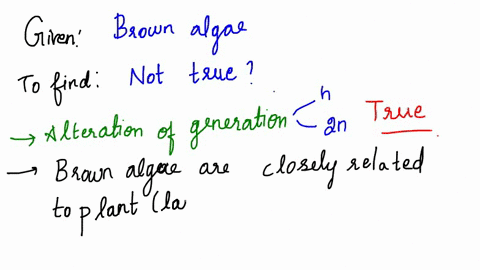 Given: Brown algae
To find: Not true?
→ Alteration of generation n 2n True
→ Brown algae are closely related
to plant (la